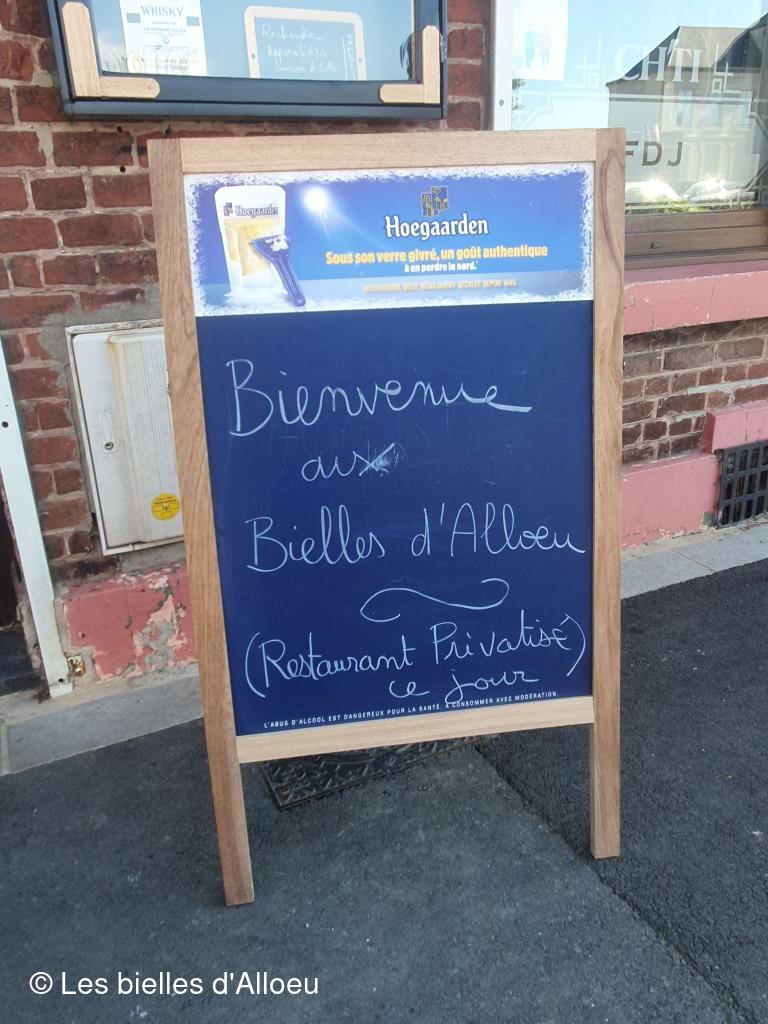 WHISKY
Recherche
CHTI
FDJ
Hoegaarden
Hoegaarden
Sous son verre givré, un goût authentique
à en perdre le nord.*
Bienvenue
aux
Bielles d'Alloeu
(Restaurant Privatisé)
ce jour
L'ABUS D'ALCOOL EST DANGEREUX POUR LA SANTÉ. À CONSOMMER AVEC MODÉRATION.
© Les bielles d'Alloeu